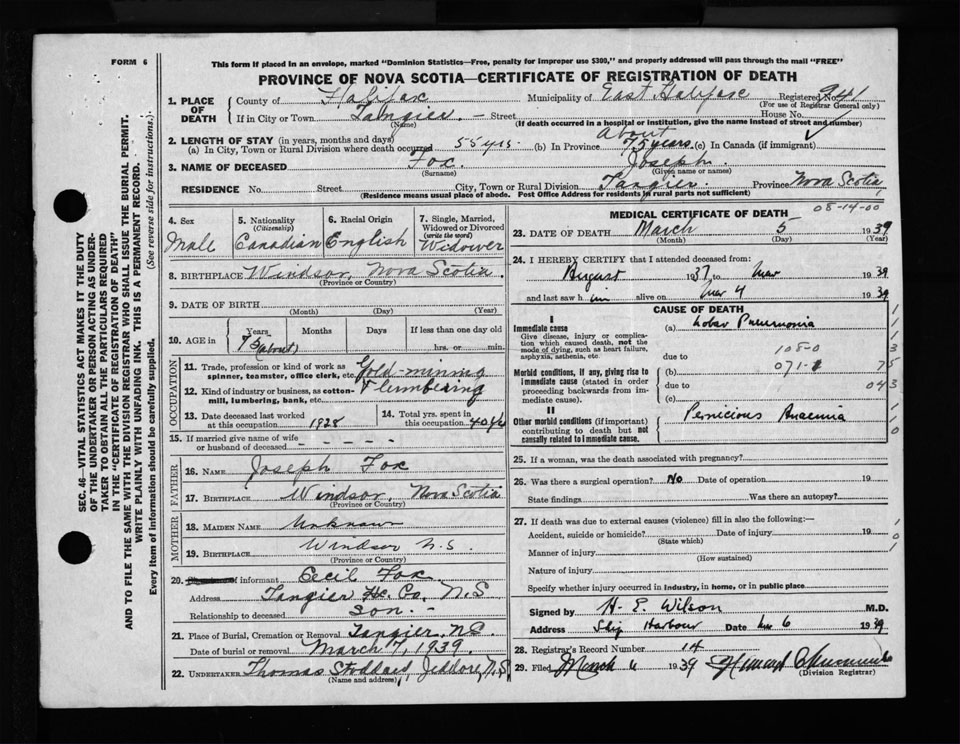 FORM 6
This form if placed in an envelope, marked "Dominion Statistics—Free, penalty for improper use $300," and properly addressed will pass through the mail "FREE"
PROVINCE OF NOVA SCOTIA—CERTIFICATE OF REGISTRATION OF DEATH
1. PLACE OF DEATH County of Halifax Municipality of East Halifax Registered No. 941
(For use of Registrar General only)
If in City or Town Tangier. — Street House No.
(Name) (If death occurred in a hospital or institution, give the name instead of street and number)
2. LENGTH OF STAY (in years, months and days)
(a) In City, Town or Rural Division where death occurred 55 yrs. (b) In Province About 75 years (c) In Canada (if immigrant)
3. NAME OF DECEASED Fox. Joseph.
(Surname) (Given name or names)
RESIDENCE No. Street City, Town or Rural Division Tangier. Province Nova Scotia
(Residence means usual place of abode. Post Office Address for residents in rural parts not sufficient)
4. Sex Male
5. Nationality (Citizenship) Canadian
6. Racial Origin English
7. Single, Married, Widowed or Divorced (write the word) Widower
8. BIRTHPLACE Windsor, Nova Scotia.
(Province or Country)
9. DATE OF BIRTH
(Month) (Day) (Year)
10. AGE in Years Months Days If less than one day old
75 (about) hrs. or min.
OCCUPATION
11. Trade, profession or kind of work as spinner, teamster, office clerk, etc. Gold-mining
12. Kind of industry or business, as cotton-mill, lumbering, bank, etc. & lumbering
13. Date deceased last worked at this occupation 1928
14. Total yrs. spent in this occupation 40
15. If married give name of wife or husband of deceased - - - - -
FATHER
16. NAME Joseph Fox
17. BIRTHPLACE Windsor, Nova Scotia
(Province or Country)
MOTHER
18. MAIDEN NAME Unknown
19. BIRTHPLACE Windsor N.S.
(Province or Country)
20. of informant Cecil Fox
Address Tangier Hx. Co. N.S
Relationship to deceased son. -
21. Place of Burial, Cremation or Removal Tangier, N.S.
Date of burial or removal March 7, 1939.
22. UNDERTAKER Thomas Stoddard, Jeddore, N.S.
(Name and address)
MEDICAL CERTIFICATE OF DEATH 08-14-00
23. DATE OF DEATH March 5 1939
(Month) (Day) (Year)
24. I HEREBY CERTIFY that I attended deceased from:
August 1937 to Mar 1939
and last saw him alive on Mar 4 1939
CAUSE OF DEATH
I
Immediate cause (a) Lobar Pneumonia
Give disease, injury or complication which caused death, not the mode of dying, such as heart failure, asphyxia, asthenia, etc.
108-0
due to
Morbid conditions, if any, giving rise to immediate cause (stated in order proceeding backwards from immediate cause).
(b) 071-1
due to
(c)
II
Other morbid conditions (if important) contributing to death but not causally related to immediate cause. Pernicious Anaemia
25. If a woman, was the death associated with pregnancy?
26. Was there a surgical operation? No Date of operation 19
State findings Was there an autopsy?
27. If death was due to external causes (violence) fill in also the following:—
Accident, suicide or homicide? Date of injury 19
(State which)
Manner of injury
(How sustained)
Nature of injury
Specify whether injury occurred in industry, in home, or in public place
Signed by H. E. Wilson M.D.
Address Ship Harbour Date Mar 6 1939
28. Registrar's Record Number 14
29. Filed March 6 1939
(Division Registrar)
SEC. 46—VITAL STATISTICS ACT MAKES IT THE DUTY
OF THE UNDERTAKER OR PERSON ACTING AS UNDER-
TAKER TO OBTAIN ALL THE PARTICULARS REQUIRED
IN THE "CERTIFICATE OF REGISTRATION OF DEATH"
AND TO FILE THE SAME WITH THE DIVISION REGISTRAR WHO SHALL ISSUE THE BURIAL PERMIT.
WRITE PLAINLY WITH UNFADING INK. THIS IS A PERMANENT RECORD.
Every item of information should be carefully supplied. (See reverse side for instructions.)